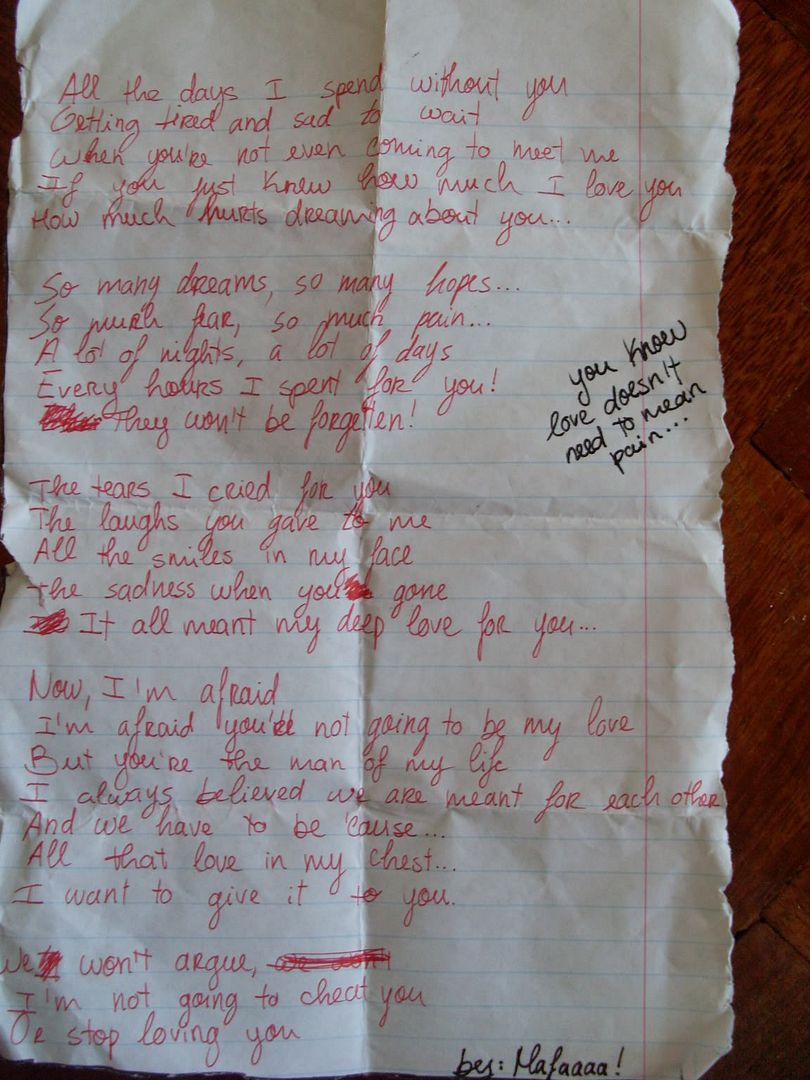 All the days I spend without you
Getting tired and sad to wait
When you're not even coming to meet me
If you just knew how much I love you
How much hurts dreaming about you...
So many dreams, so many hopes...
So much fear, so much pain...
A lot of nights, a lot of days
Every hours I spent for you!
They won't be forgotten!
you know
love doesn't
need to mean
pain...
The tears I cried for you
The laughs you gave to me
All the smiles in my face
The sadness when you gone
It all meant my deep love for you...
Now, I'm afraid
I'm afraid you're not going to be my love
But you're the man of my life
I always believed we are meant for each other
And we have to be 'cause...
All that love in my chest...
I want to give it to you.
We won't argue, we won't
I'm not going to cheat you
Or stop loving you
by: Mafaaaa!